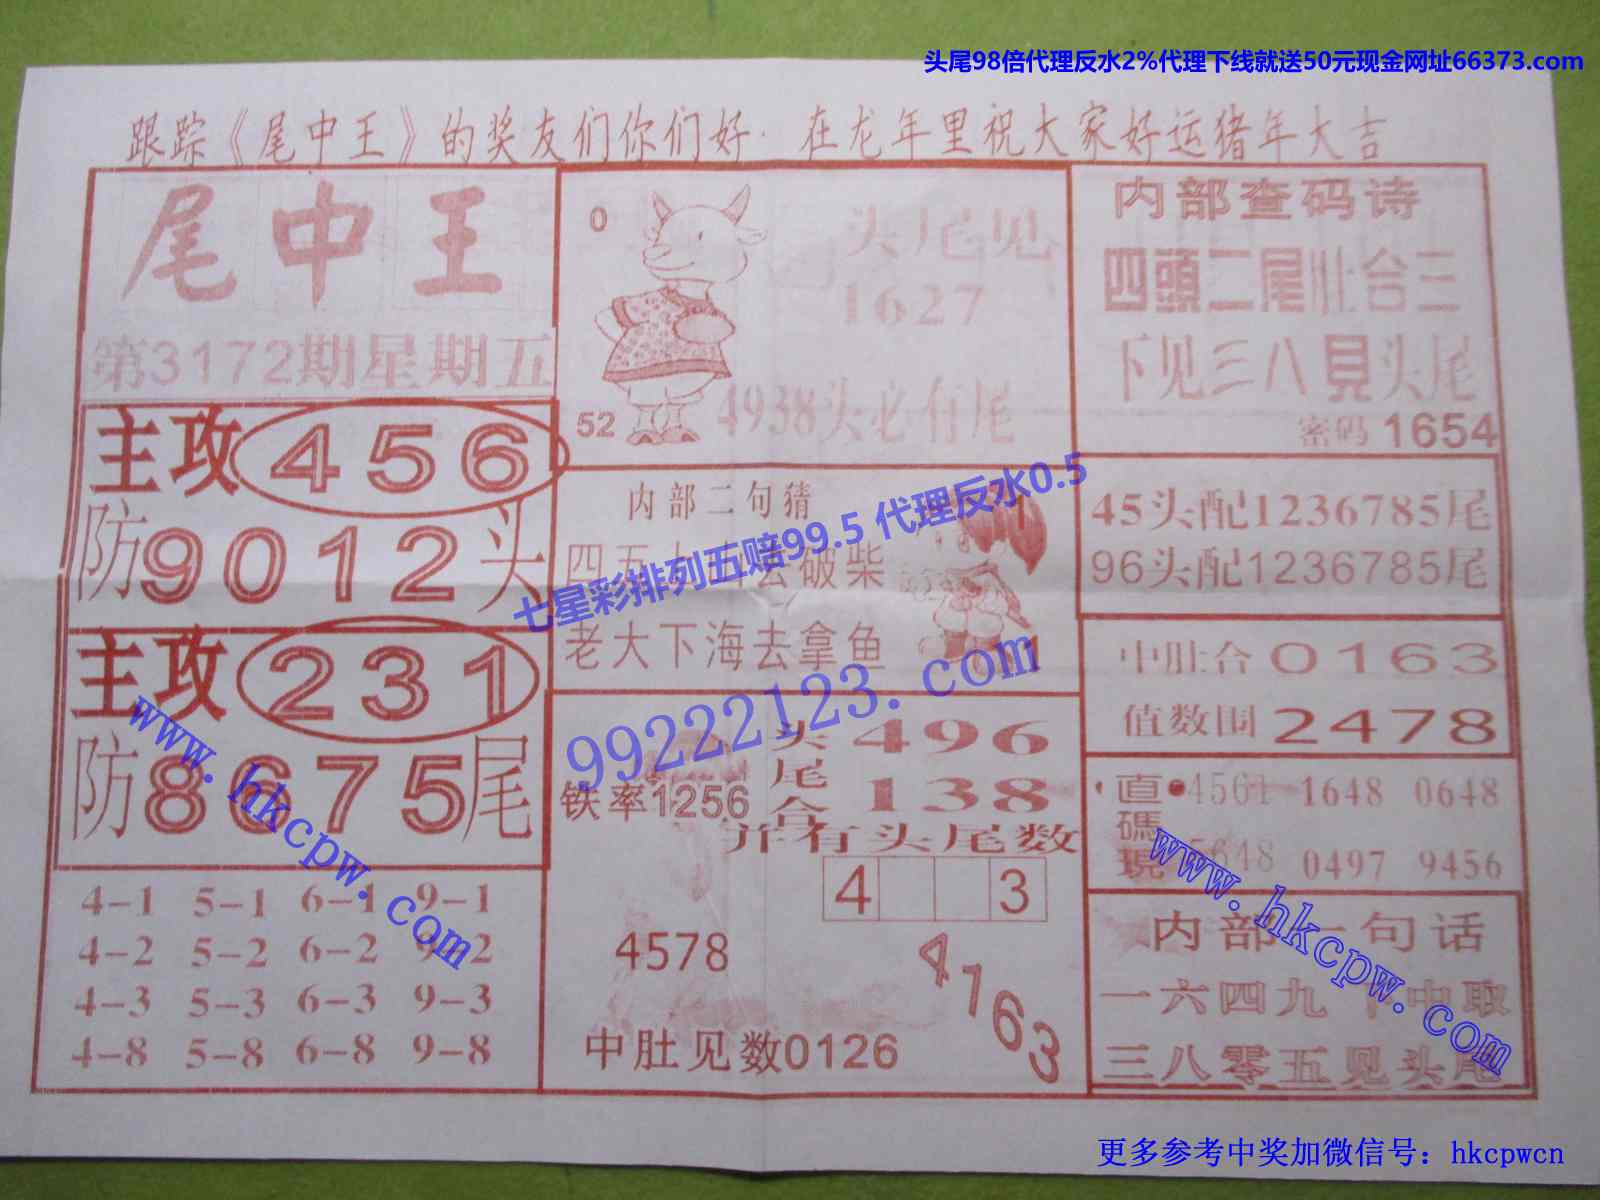 头尾98倍代理反水2%代理下线就送50元现金网址66373.com
跟踪《尾中王》的奖友们你们好. 在龙年里祝大家好运猪年大吉
尾中王
第3172期星期五
主攻456
防9012头
主攻231
防8675尾
4-1 5-1 6-1 9-1
4-2 5-2 6-2 9-2
4-3 5-3 6-3 9-3
4-8 5-8 6-8 9-8
0
52
头尾见
1627
4938头必有尾
内部二句猜
四五 去破柴
老大下海去拿鱼
七星彩排列五赔99.5 代理反水0.5
99222123.com
铁率1256
头 496
尾
合 138
并有头尾数
4 3
4578
4763
中肚见数0126
内部查码诗
四頭二尾肚合三
下见三八見头尾
密码 1654
45头配1236785尾
96头配1236785尾
中肚合0163
值数围2478
直碼現
4561 1648 0648
5648 0497 9456
内部一句话
一六四九 中取
三八零五见头尾
www.hkcpw.com
www.hkcpw.com
更多参考中奖加微信号：hkcpwcn